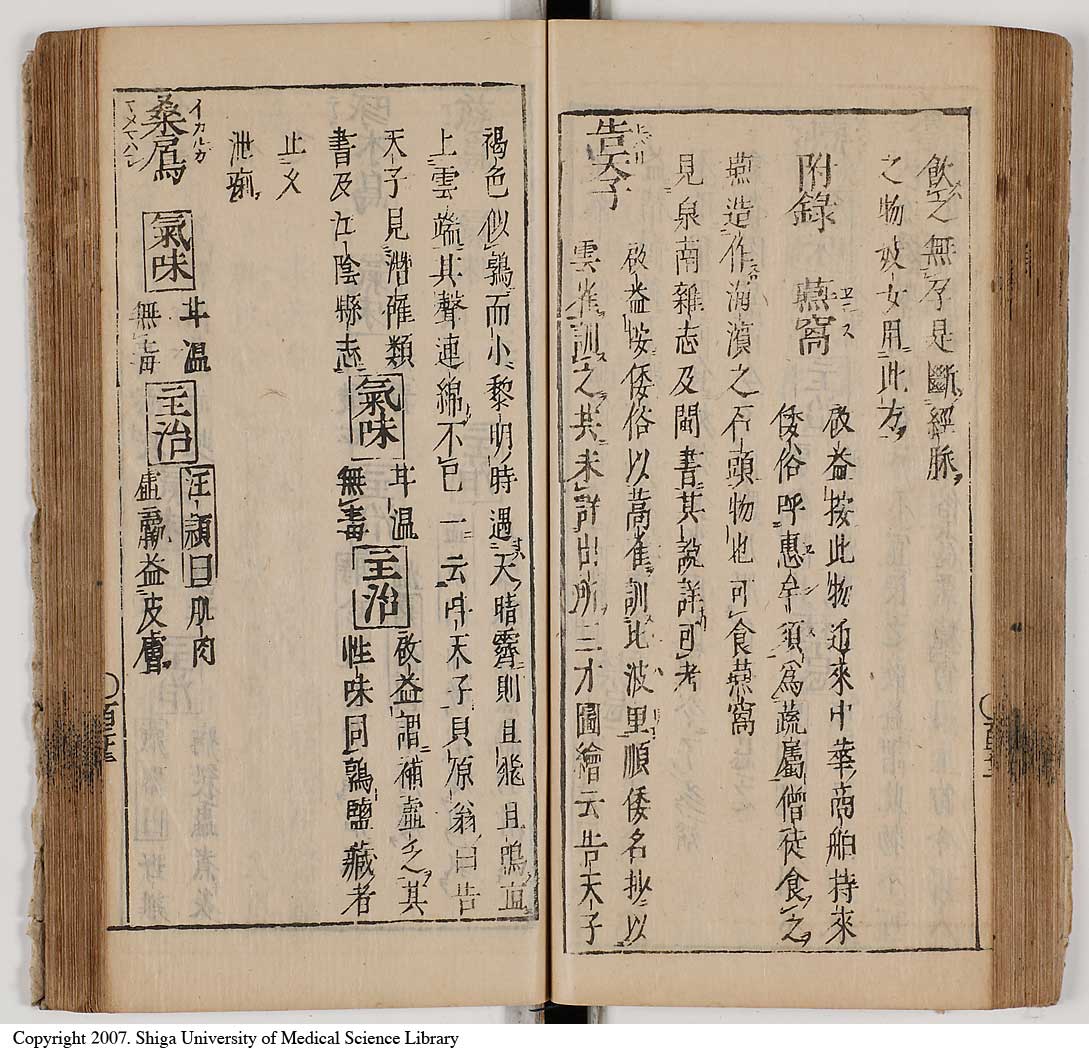 飲之無子是斷經脉
之物妓女用此方
附錄 燕窩
啟益按此物近來中華商舶持來
倭俗呼惠牟須爲蔬屬僧徒食之
燕造作海濱之石頭物也可食燕窩
見泉南雜志及閩書其說詳可考
告天子
啟益按倭俗以蒿雀訓比波里順倭名抄以
雲雀訓之共未詳出所三才圖繪云告天子
褐色似鶉而小黎明時遇天晴霽則且飛且鳴直
上雲端其聲連綿不已一云叫天子貝原翁曰告
天子見潛確類
書及江陰縣志
氣味
甘溫
無毒
主治
啟益謂補虛之其
性味同鶉鹽藏者
止久
泄痢
桑鳫
イカルガ
マメマハシ
氣味
甘溫
無毒
主治
汪穎曰肌肉
虛羸益皮膚
Copyright 2007. Shiga University of Medical Science Library